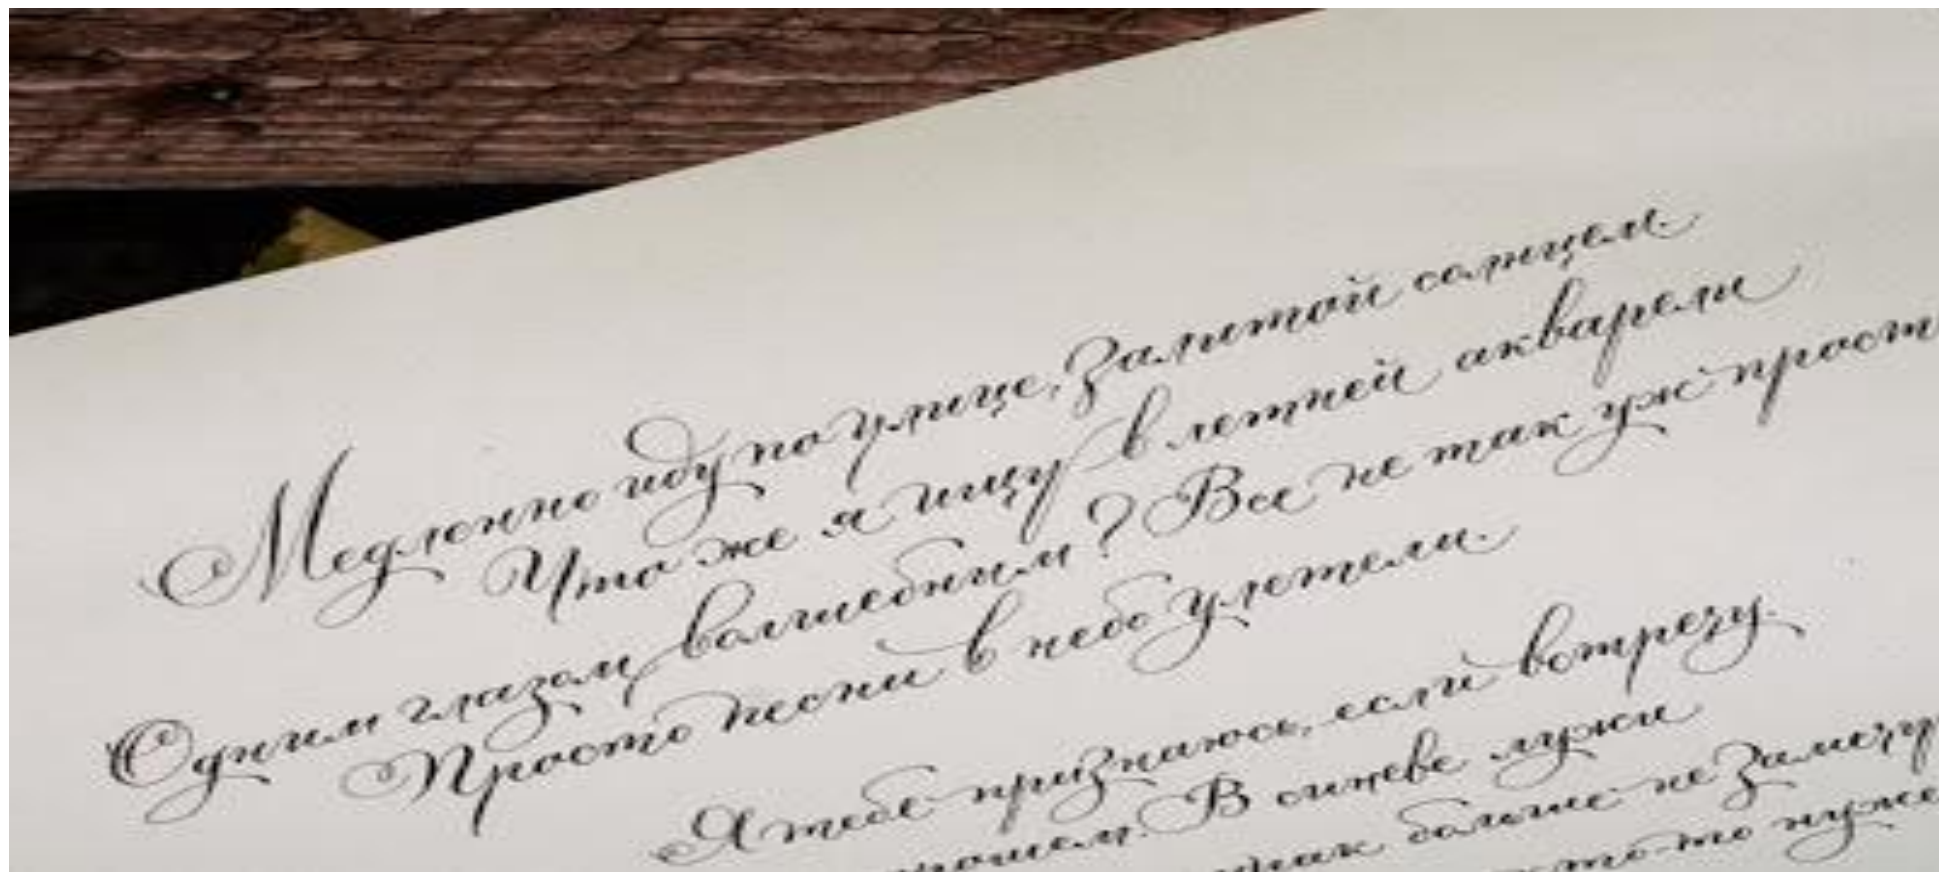 Медленно иду по улице, залитой солнцем.
Что же я ищу в летней акварели
Одним глазом, волшебным? Все не так уж прост
Просто песни в небо улетели.
Я тебе признаюсь, если встречу.
В синеве лужи
больше не замечу
нуже